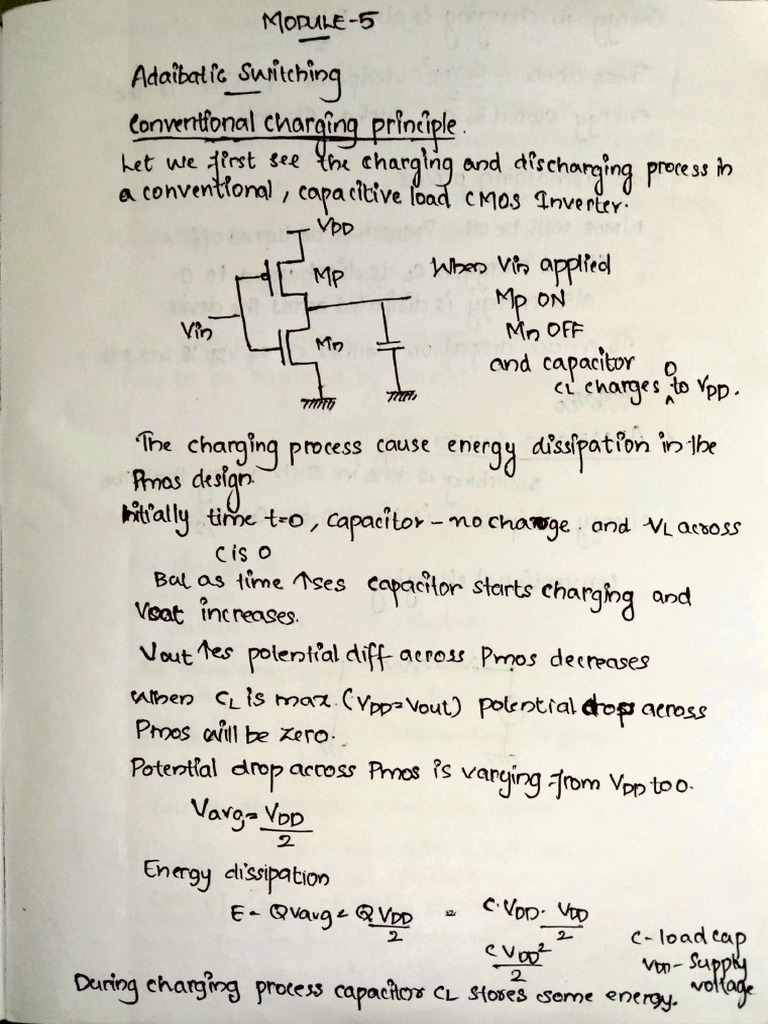 MODULE-5
Adaibatic Switching
Conventional charging principle.
Let we first see the charging and discharging process in
a conventional, capacitive load CMOS Inverter.
VDD
Mp
Vin
Mn
When Vin applied
Mp ON
Mn OFF
and capacitor
CL charges 0 to VDD.
The charging process cause energy dissipation in the
Pmos design.
Initially time t=0, capacitor - no charge. and VL across
C is 0
But as time ↑ses capacitor starts charging and
Vout increases.
Vout ↑es potential diff across Pmos decreases
When CL is max (VDD=Vout) potential drop across
Pmos will be zero.
Potential drop across Pmos is varying from VDD to 0.
Varg = VDD/2
Energy dissipation
E = QVarg = Q VDD/2 = C.VDD. VDD/2
CVDD²/2
C-load cap
VDD- Supply
voltage
During charging process capacitor CL stores some energy.